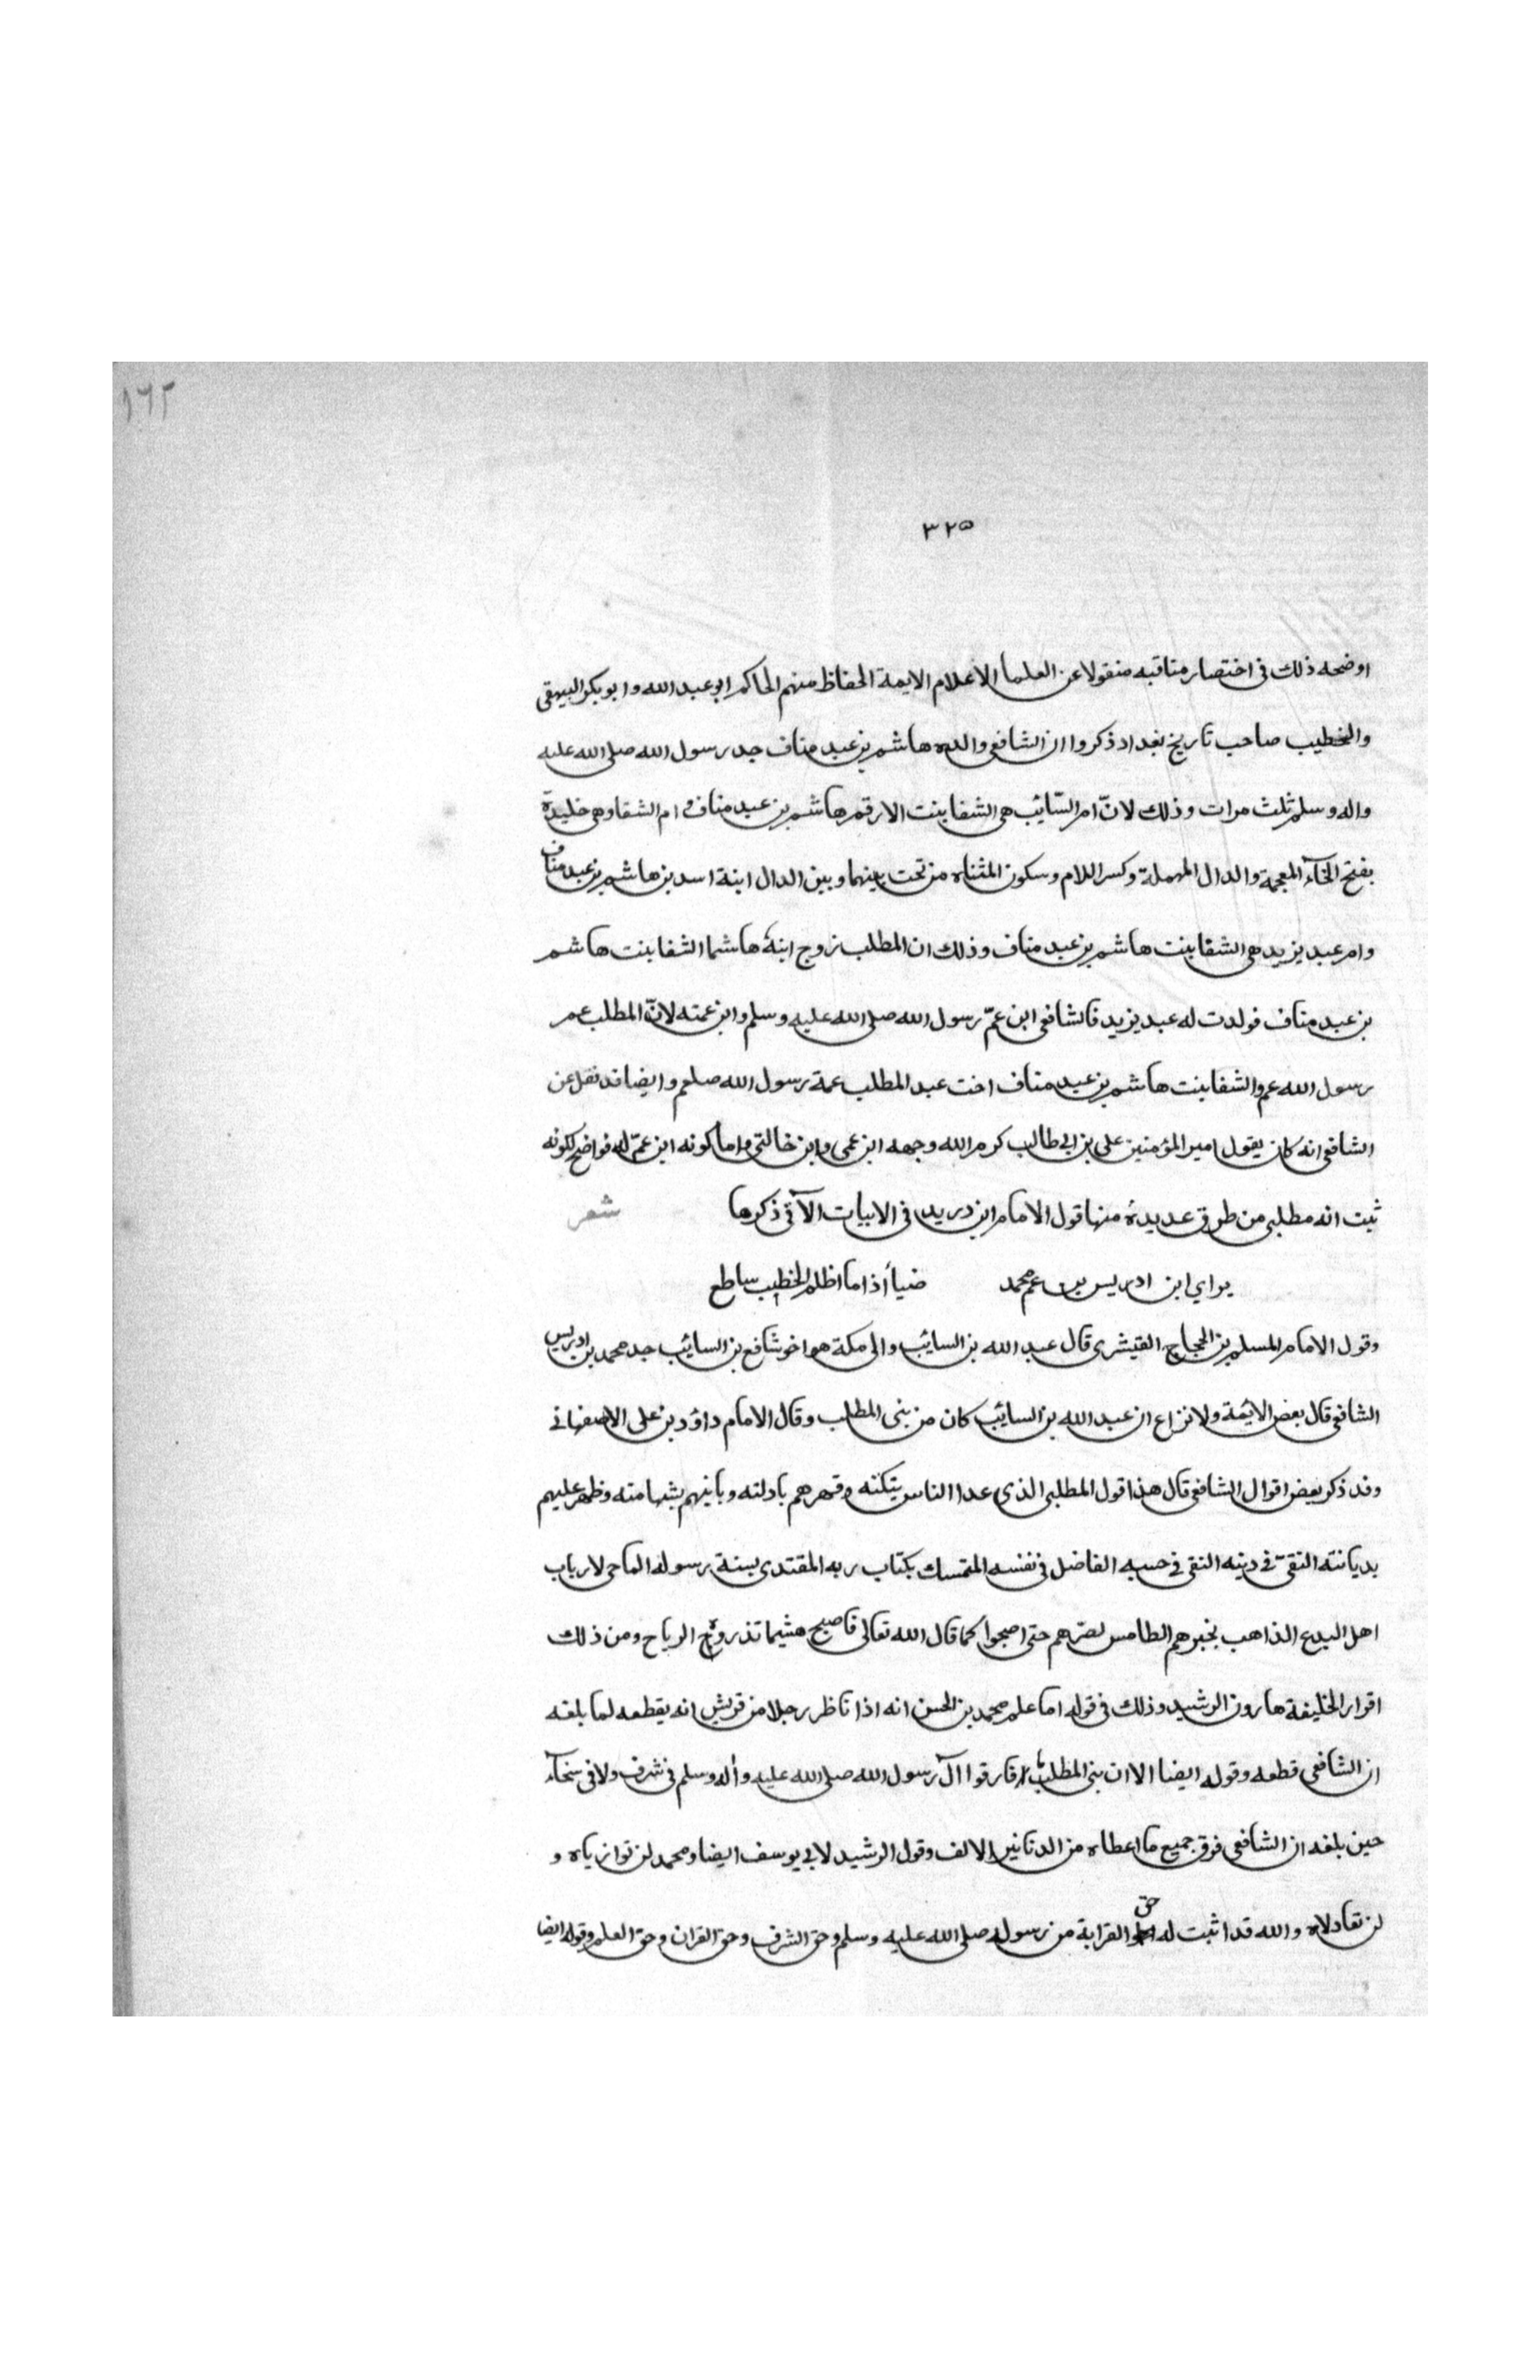 ١٦٢
٣٢٥
اوضحه ذلك فى اختصار مناقبه منقولا عن العلما الاعلام الايمة الحفاظ منهم الحاكم ابو عبد الله وابو بكر البيهقى
والخطيب صاحب تاريخ بغداد ذكروا ان الشافعى والده هاشم بن عبد مناف جد رسول الله صلى الله عليه
واله وسلم ثلث مرات وذلك لانّ ام السّائب هى الشفا بنت الارقم هاشم بن عبد مناف و ام الشفا وهى خليدة
بفتح الخآء المعجمة والدال المهملة وكسر اللام وسكون المثناه من تحت بينهما وبين الدال ابنة اسد بن هاشم بن عبد مناف
وام عبد يزيد هى الشفا بنت هاشم بن عبد مناف وذلك ان المطلب زوج ابنهُ هاشما الشفا بنت هاشم
بن عبد مناف فولدت له عبد يزيد فالشافعى ابن عمّ رسول الله صلى الله عليه وسلم وابن عمته لانّ المطلب عم
رسول الله عم والشفا بنت هاشم بن عبد مناف اخت عبد المطلب عمة رسول الله صلعم وايضا قد نقل عن
الشافعى انه كان يقول امير المؤمنين على بن ابى طالب كرم الله وجهه ابن عمى وابن خالتى واما كونه ابن عمّ له فواضح لكونه
ثبت انه مطلبى من طرق عديدة منها قول الامام ابن دريد فى الابيات الآتى ذكرها شعر
يراي ابن ادريس بن عم محمد ضياأ اذا ما اظلم الخطب ساطع
وقول الامام المسلم بن الحجاج القيشرى قال عبد الله بن السائب والى مكة هو اخو شافع بن السائب جد محمد بن ادريس
الشافعى قال بعض الائمة ولا نزاع ان عبد الله بن السائب كان من بنى المطلب وقال الامام داؤد بن على الاصفهانى
وقد ذكر بعض اقوال الشافعى قال هذا قول المطلبى الذى عدا الناس بنكته وقهرهم بادلته وباينهم بشهامته وظهر عليهم
بديانته التقى فى دينه النقى فى حسبه الفاضل فى نفسه المتمسك بكتاب ربه المقتدى بسنة رسوله الماحى لارباب
اهل البدع الذاهب بخبرهم الطامس لصرّهم حتى اصبحوا كما قال الله تعالى فاصبح هشيما تذروه الرياح ومن ذلك
اقرار الخليفة هارون الرشيد وذلك فى قوله اما علم محمد بن الحسن انه اذا ناظر رجلا من قريش انه يقطعه لما بلغه
ان الشافعى قطعه وقوله ايضا الا ان بنى المطلب ما فارقوا آل رسول الله صلى الله عليه وأله وسلم فى شرف ولا فى سخآء
حين بلغه ان الشافعى فرق جميع ما اعطاه من الدنانير الالف وقول الرشيد لابى يوسف ايضا ومحمد لن توازياه و
لن تعادلاه والله قد اثبت له حق القرابة من رسوله صلى الله عليه وسلم وحق الشرف وحق القران وحق العلم وقوله ايضا